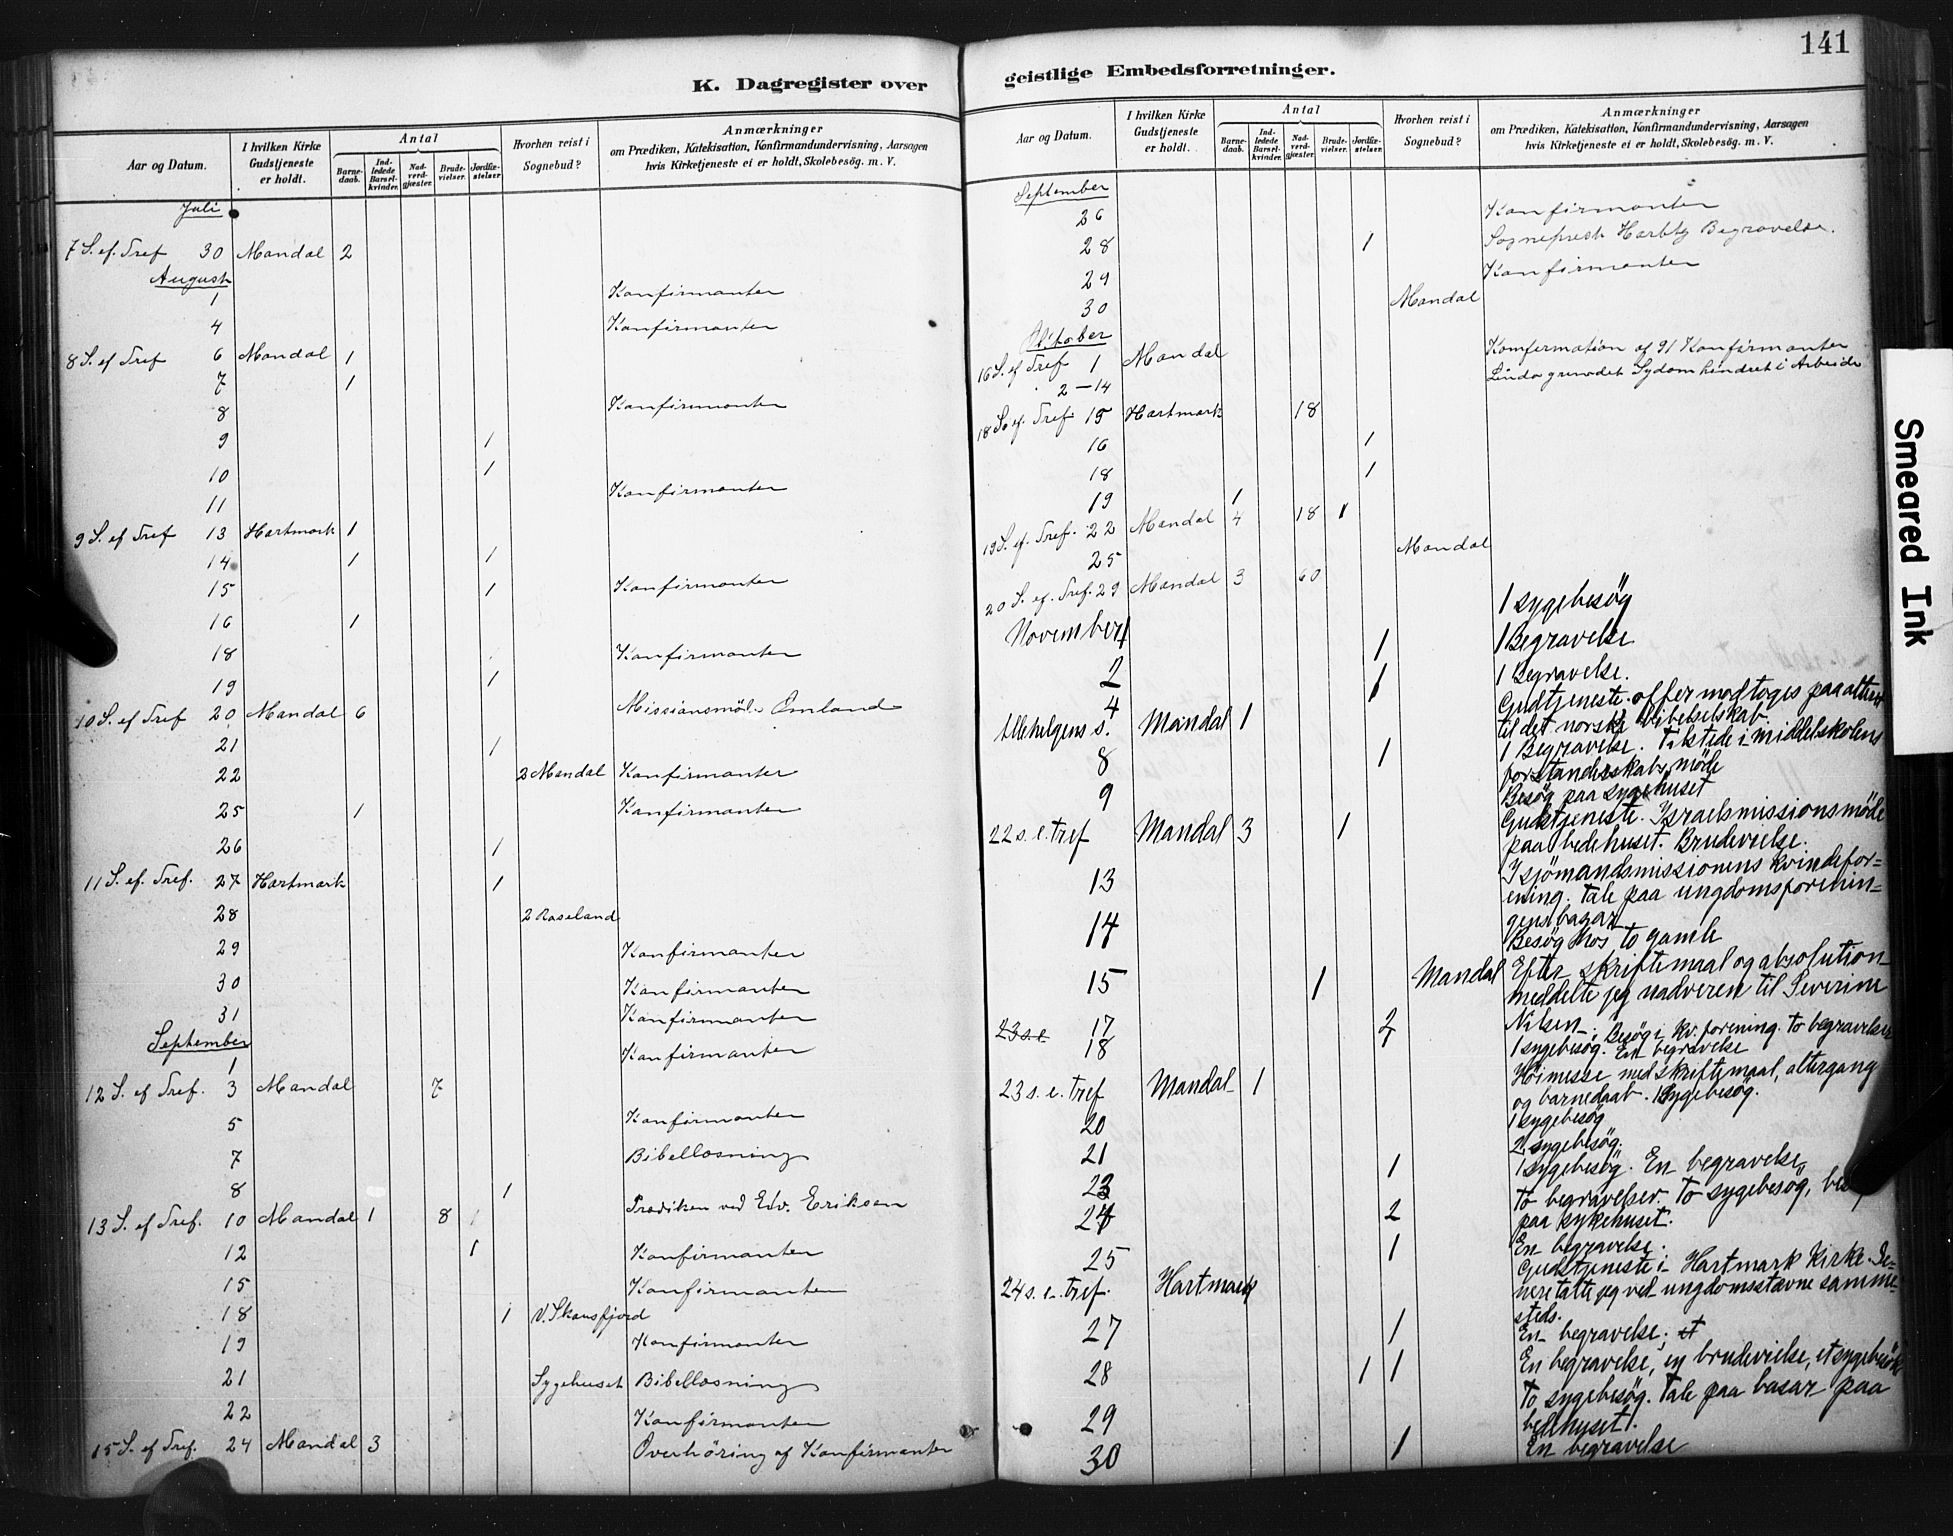 K. Dagregister over
Aar og Datum. I hvilken Kirke Gudstjeneste er holdt. Antal Barnedaab. Indledede Barselkvinder. Nadverdgjæster. Brudevielser. Jordfæstelser. Hvorhen reist i Sognebud? Anmærkninger om Prædiken, Katekisation, Konfirmandundervisning, Aarsagen hvis Kirketjeneste ei er holdt, Skolebesøg. m. V.
Juli
7 S. ef. Tref 30 Mandal 2
August
1 Konfirmanter
4 Konfirmanter
8 S. ef Tref 6 Mandal 1
7 1
8 Konfirmanter
9 1
10 1
11 Konfirmanter
9 S. ef Tref 13 Hartmark 1
14 1 1
15 1 Konfirmanter
16 1
18 Konfirmanter
19 1
10 S. ef Tref 20 Mandal 6 Missionsmöde Omland
21 1
22 2 Mandal Konfirmanter
25 1 Konfirmanter
26 1
11 S. ef. Tref. 27 Hartmark 1
28 2 Roseland
29 Konfirmanter
30 Konfirmanter
31 Konfirmanter
September
1 Konfirmanter
12 S. ef Tref. 3 Mandal 7
5 Konfirmanter
7 Bibellæsning
8 1
13 S. ef Tref. 10 Mandal 1 8 1 Prædiken ved Edv. Eriksen
12 1 Konfirmanter
15 Konfirmanter
18 1 V. Skansfjord
19 Konfirmanter
21 Sygehuset Bibellæsning
22 Konfirmanter
15 S. ef Tref. 24 Mandal 3 Overhöring af Konfirmanter
141
geistlige Embedsforretninger.
Aar og Datum. I hvilken Kirke Gudstjeneste er holdt. Antal Barnedaab. Indledede Barselkvinder. Nadverdgjæster. Brudevielser. Jordfæstelser. Hvorhen reist i Sognebud? Anmærkninger om Prædiken, Katekisation, Konfirmandundervisning, Aarsagen hvis Kirketjeneste ei er holdt, Skolebesøg. m. V.
September
26 Konfirmanter
28 1 Sogneprest Begravelse.
29 Konfirmanter
30 Mandal
Oktober
16 S. ef Tref 1 Mandal Konfirmation af 91 Konfirmanter
2-14 Sygdom hindret i Arbeide
18 S. ef. Tref 15 Hartmark 18
16 1
18 1
19 1
19 S. ef. Tref. 22 Mandal 4 18 1
25 Mandal
20 S. ef. Tref. 29 Mandal 3 60
1 sygebesøg
November 1 1 1 Begravelse
2 1 1 Begravelse.
4 Gudtjeneste. offer modtoges paa alteret
Allehelgens s. Mandal 1 til det norske bibelselskab.
8 1 1 Begravelse. Tilstede i middelskolens
forstanderskabsmøde
9 Besøg paa sygehuset
22 s. e. tref Mandal 3 1 Gudstjeneste. Israelsmissionsmøde
paa bedehuset. Brudevielse.
13 I sjømandsmissionens kvindefor=
ening. Tale paa ungdomsforenin=
gens basar
14 Besøg hos to gamle
15 1 Mandal Efter skriftemaal og absolution
meddelte jeg nadveren til Severine
17 2 Nilsen. Besøg i kv. forening. To begravelser
23 s. e. 18 1 sygebesøg. En begravelse
23 s. e. tref Mandal 1 Høimesse med skriftemaal, altergang
og barnedaab. 1 Sygebesøg.
20 1 sygebesøg
21 2 sygebesøg.
23 1 1 sygebesøg. En begravelse
24 2 To begravelser. To sygebesøg,
paa sykehuset.
25 1 En begravelse.
24 s. e. tref. Hartmark Gudstjeneste i Hartmark Kirke. Se=
nere talte jeg ved ungdomsstævne samme=
steds.
27 1 En begravelse. et
28 1 1 En begravelse, en brudevielse, et sygebesök
29 To sygebesøg. Tale paa basar paa
bedehuset.
30 1 En begravelse
Smeared Ink